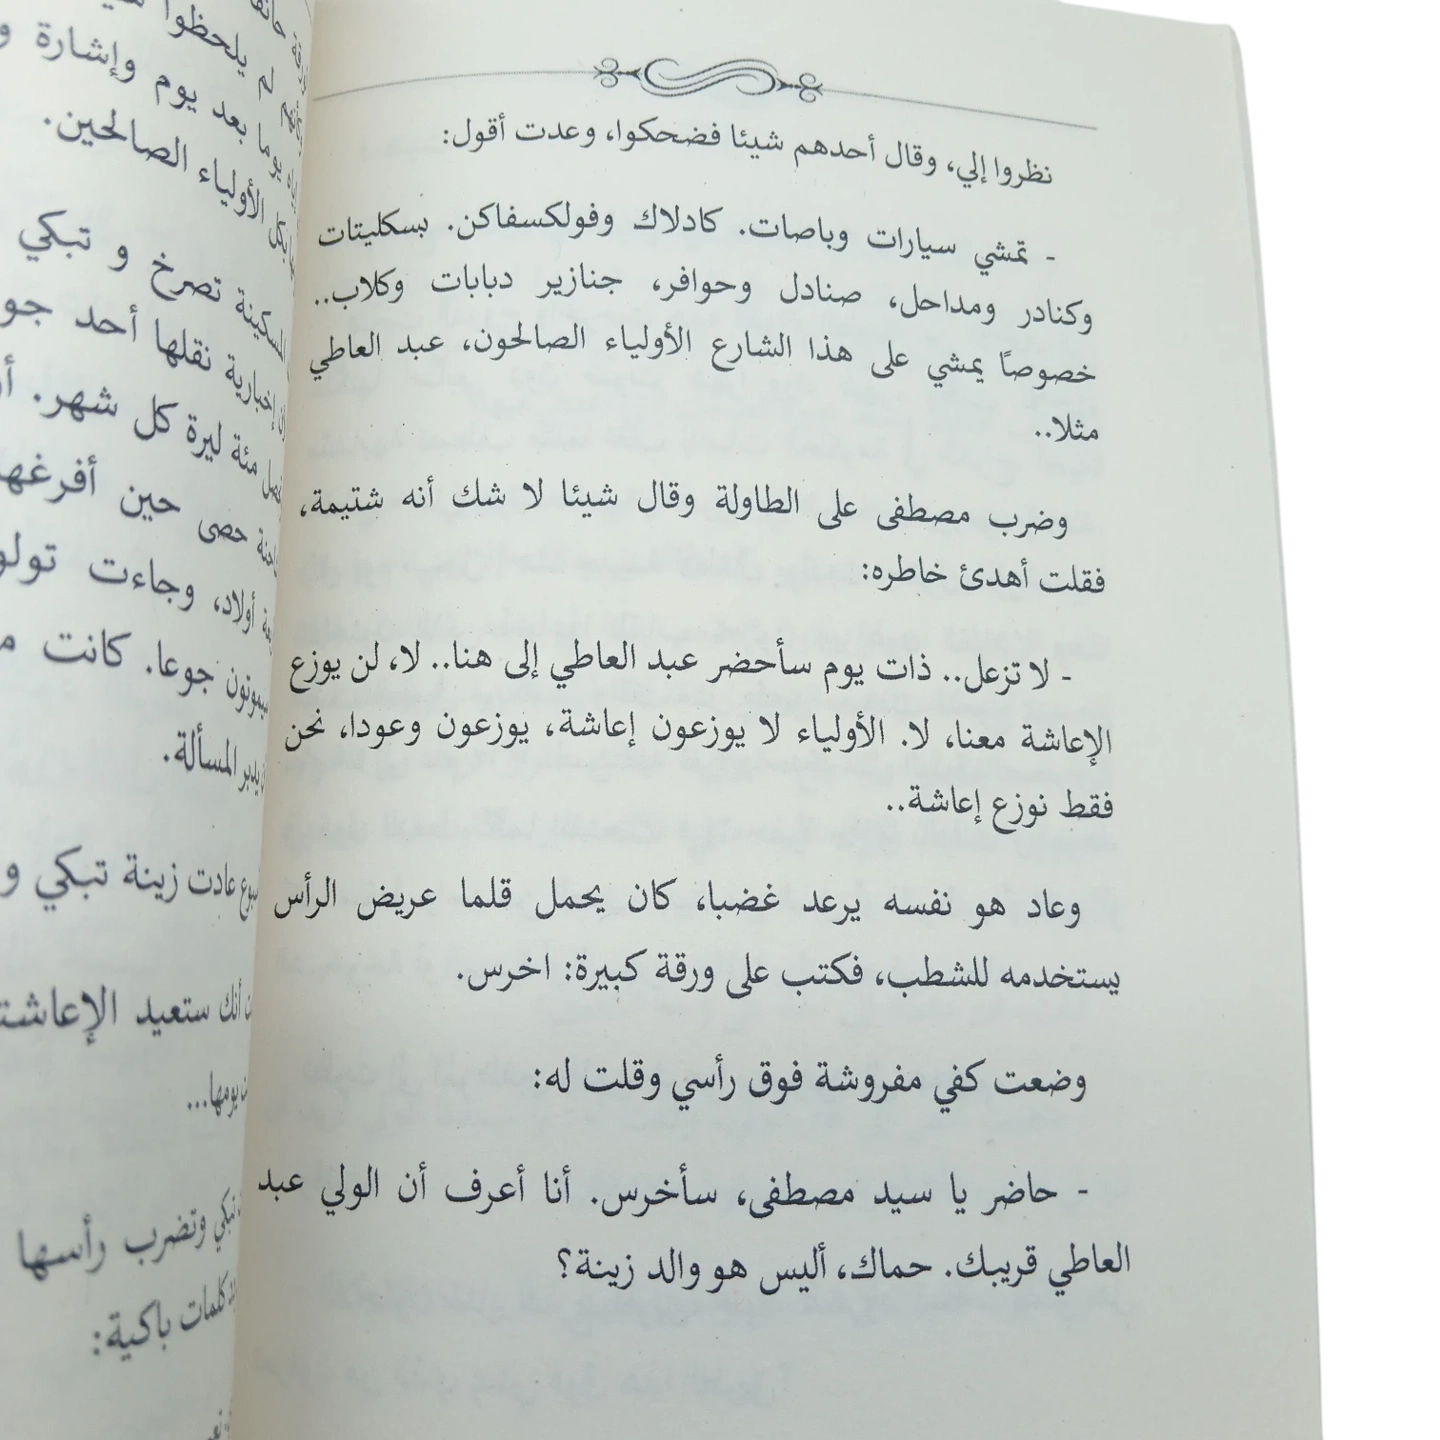 نظروا إلي، وقال أحدهم شيئا فضحكوا، وعدت أقول:
- تمشي سيارات وباصات. كادلاك وفولكسفاكن. بسكليتات
وكنادر ومداحل، صنادل وحوافر، جنازير دبابات وكلاب..
خصوصًا يمشي على هذا الشارع الأولياء الصالحون، عبد العاطي
مثلا..
وضرب مصطفى على الطاولة وقال شيئا لا شك أنه شتيمة،
فقلت أهدئ خاطره:
- لا تزعل.. ذات يوم سأحضر عبد العاطي إلى هنا.. لا، لن يوزع
الإعاشة معنا، لا. الأولياء لا يوزعون إعاشة، يوزعون وعودا، نحن
فقط نوزع إعاشة..
وعاد هو نفسه يرعد غضبا، كان يحمل قلما عريض الرأس
يستخدمه للشطب، فكتب على ورقة كبيرة: اخرس.
وضعت كفي مفروشة فوق رأسي وقلت له:
- حاضر يا سيد مصطفى، سأخرس. أنا أعرف أن الولي عبد
العاطي قريبك. حماك، أليس هو والد زينة؟
يلحظوا
يوما بعد يوم وإشارة و
الأولياء الصالحين.
تصرخ و تبكي
إخبارية نقلها أحد جو
مئة ليرة كل شهر.
حصى حين أفرغه
أولاد، وجاءت تولو
سيموتون جوعا. كانت
يدبر المسألة.
عادت زينة تبكي و
أنك ستعيد الإعاشة
يومها...
تبكي وتضرب رأسها
كلمات باكية: